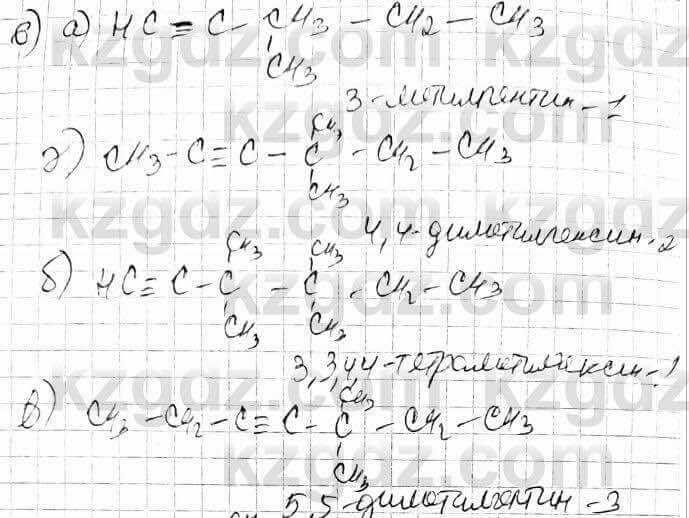 в) а) HC ≡ C - CH3 - CH2 - CH3
CH3
3-метилпентин-1
CH3
г) CH3 - C ≡ C - C - CH2 - CH3
CH3
4,4-диметилгексин-2
CH3 CH3
б) HC ≡ C - C - C - CH2 - CH3
CH3 CH3
3,3,4,4-тетраметилгексин-1
CH3
в) CH3 - CH2 - C ≡ C - C - CH2 - CH3
CH3
5,5-диметилгептин-3
kzgdz.com